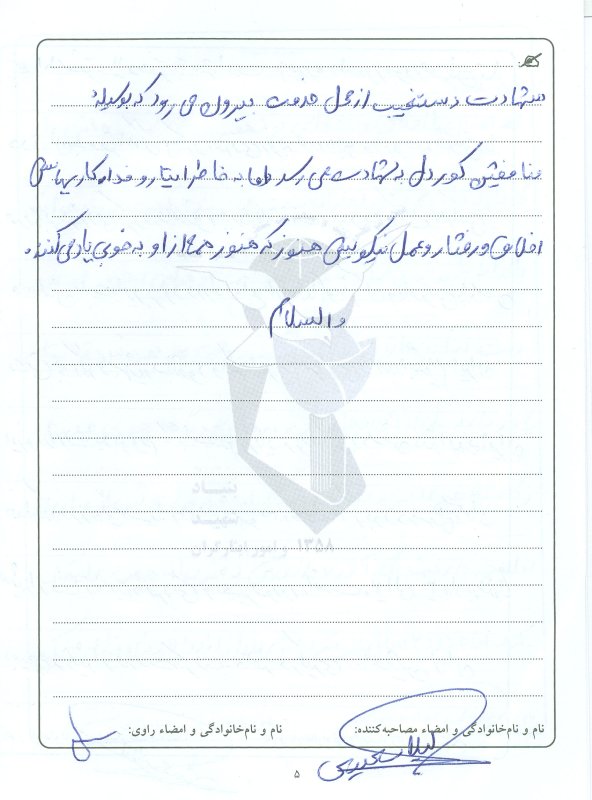 شهادت دستغیب از محل خدمت بیرون می رود که بوسیله
منافقین کوردل به شهادت می رسد اما به خاطر ایثار و فداکاریهایش
اخلاق و رفتار و عمل نیکویش هنوز که هنوز همه از او به خوبی یاد می کنند.
والسلام
بنیاد
شهید
و امور ایثارگران
۱۳۵۸
نام و نام‌خانوادگی و امضاء مصاحبه‌کننده:
نام و نام‌خانوادگی و امضاء راوی:
۵